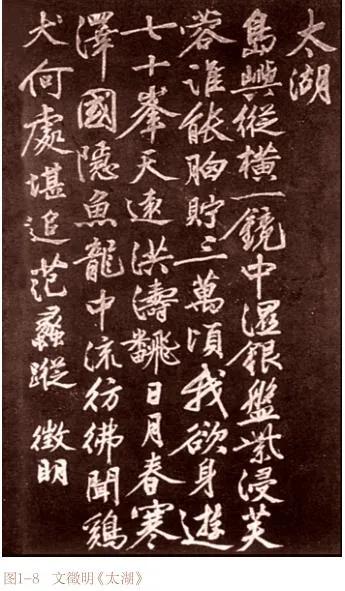 太湖
島嶼縱橫一鏡中濕銀盤紫浸芙
蓉誰能胸貯三萬頃我欲身遊
七十峯天遠洪濤飜日月春寒
澤國隱魚龍中流彷彿聞鷄
犬何處堪追范蠡蹤 徵明
图1-8 文徵明《太湖》